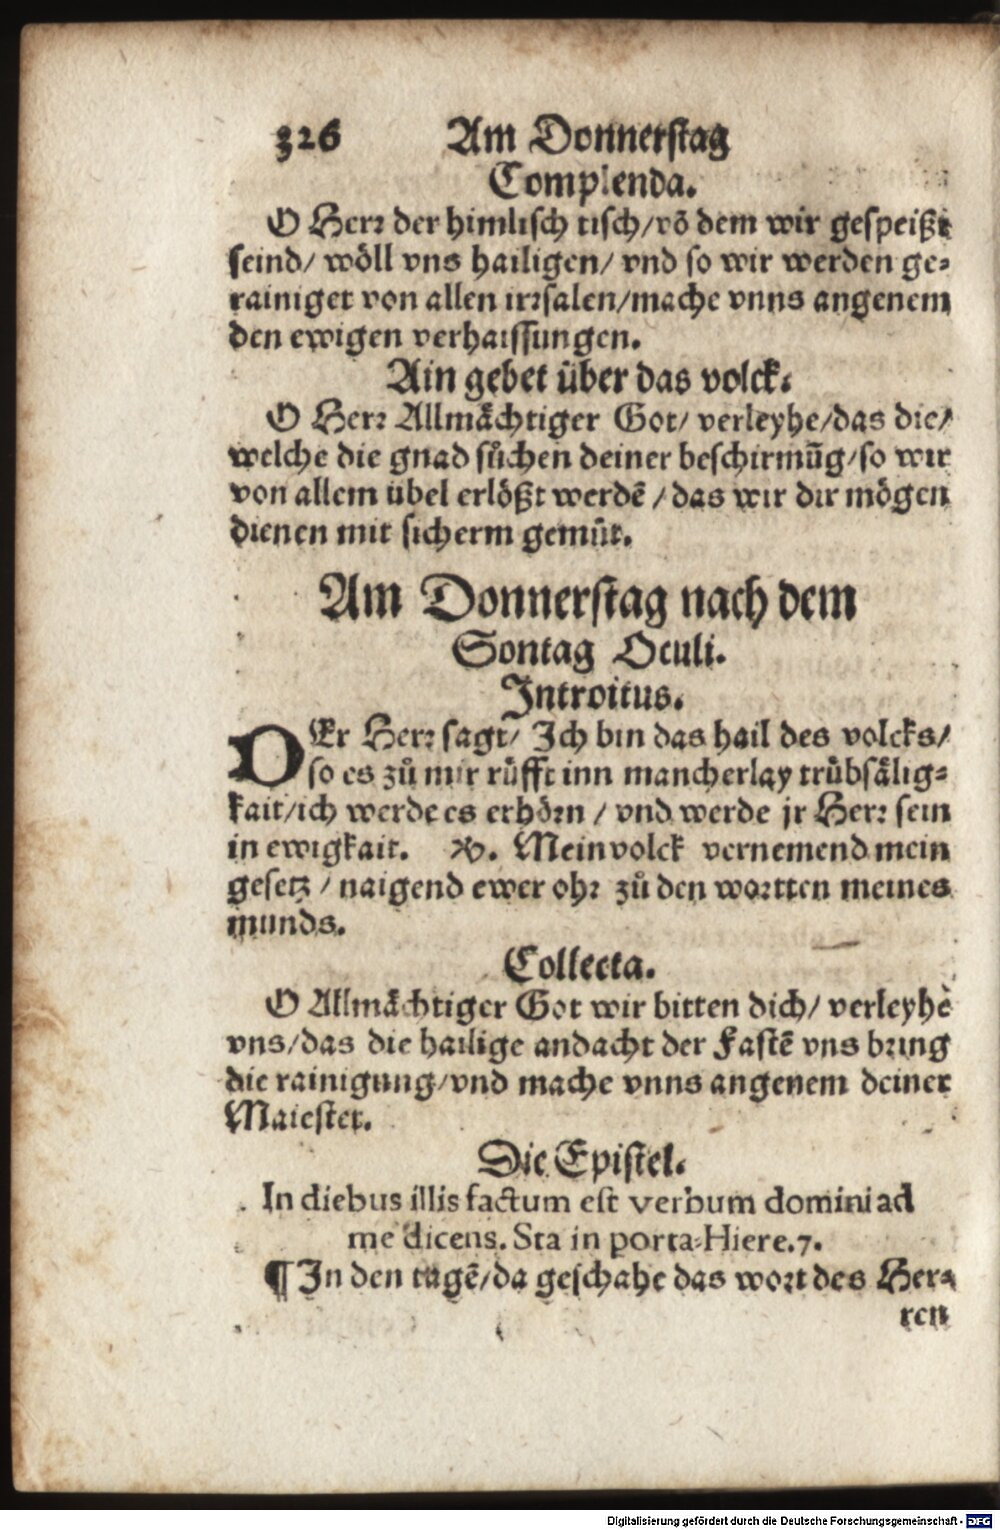 326 Am Donnerstag
Complenda.
O Herr der himlisch tisch/võ dem wir gespeißt
seind/ wöll vns hailigen/ vnd so wir werden ge-
rainiget von allen irrsalen/mache vnns angenem
den ewigen verhaissungen.
Ain gebet über das volck.
O Herr Allmächtiger Got/ verleyhe/das die/
welche die gnad sůchen deiner beschirmũg/so wir
von allem übel erlößt werdẽ/das wir dir mögen
dienen mit sicherm gemüt.
Am Donnerstag nach dem
Sontag Oculi.
Introitus.
DEr Herr sagt/ Ich bin das hail des volcks/
so es zů mir rüfft inn mancherlay trübsälig-
kait/ich werde es erhörn / vnd werde jr Herr sein
in ewigkait. ℣. Mein volck vernemend mein
gesetz / naigend ewer ohr zů den wortten meines
munds.
Collecta.
O Allmächtiger Got wir bitten dich/ verleyhe
vns/das die hailige andacht der Fastẽ vns bring
die rainigung/vnd mache vnns angenem deiner
Maiestet.
Die Epistel.
In diebus illis factum est verbum domini ad
me dicens. Sta in porta. Hiere.7.
¶ In den tagẽ/da geschahe das wort des Her-
ren
Digitalisierung gefördert durch die Deutsche Forschungsgemeinschaft - DFG